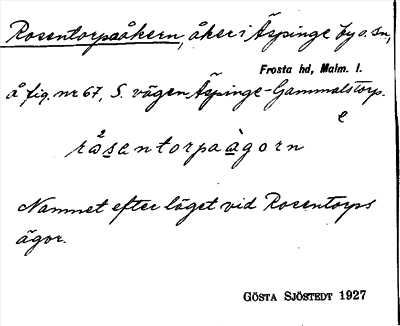 Rosentorpsåkern, åker i Äspinge by o. sn,
Frosta hd, Malm. l.
å fig. nr 67, S. vägen Äspinge-Gammalstorp.
e
2
råsentorpaàgorn
Namnet efter läget vid Rosentorps
ägor.
GÖSTA SJÖSTEDT 1927